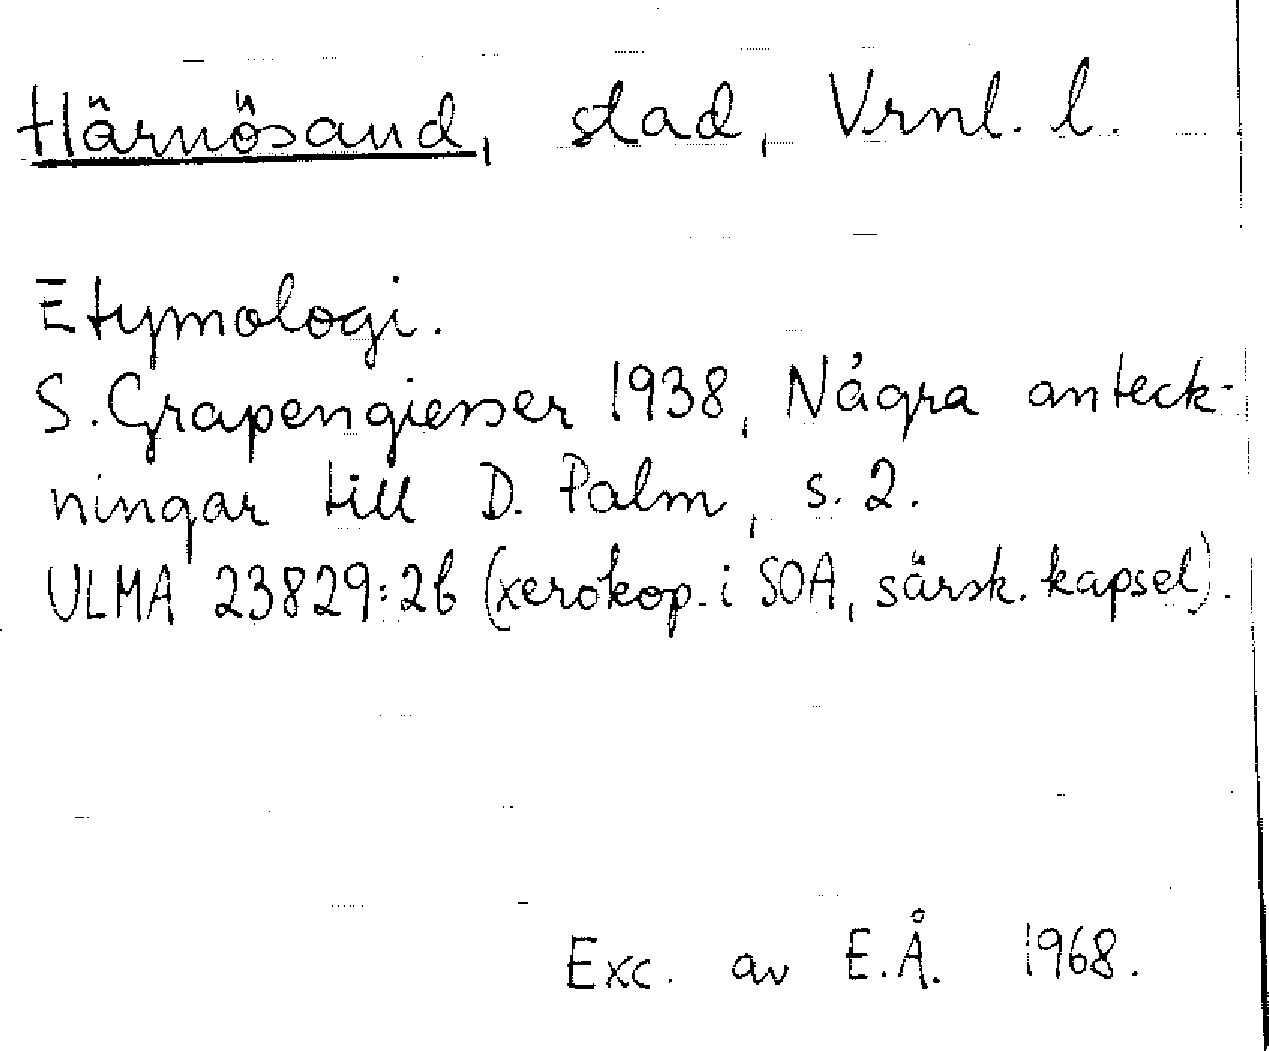 Härnösand, stad, Vrnl. l.
Etymologi.
S. Grapengiesser 1938, Några anteck-
ningar till D. Palm, s. 2.
ULMA 23829:2b (xerokop. i SOA, särsk. kapsel).
Exc. av E.Å. 1968.